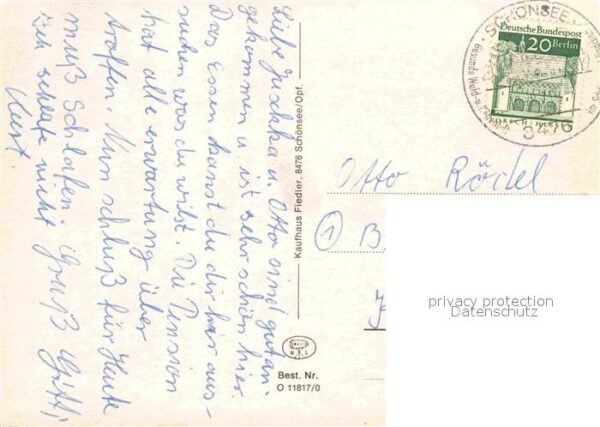 Liebe Juschka u. Otto sind gut an-
gekommen u ist sehr schön hier.
Das Essen kanst du dir hier aus-
suchen was du wilst. Die Pension
hat alle erwartung über
troffen. Nun schluß für Heute
muß Schlafen. Gruß Gitti,
Ich schlafe nicht
Kurt.
Kaufhaus Fiedler, 8476 Schönsee/Opf.
Best. Nr.
O 11817/0
SCHÖNSEE
8476
Deutsche Bundespost
20 Berlin
Otto Rödel
1 B
privacy protection
Datenschutz